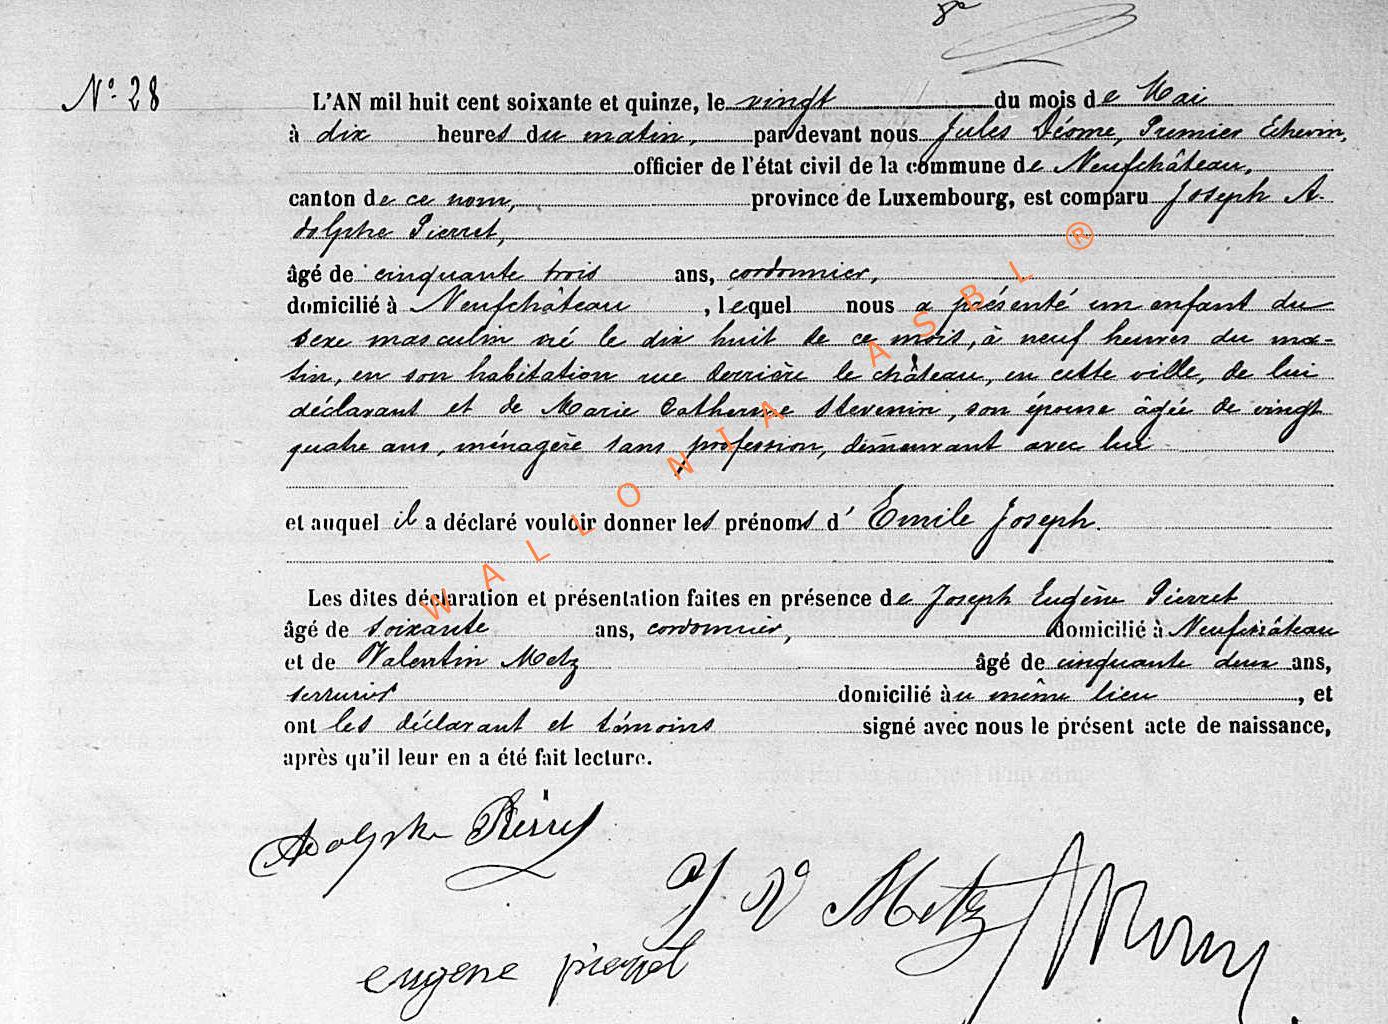 8e
No 28
L'AN mil huit cent soixante et quinze, le vingt du mois de Mai
à dix heures du matin, par devant nous Jules Déome, Premier Echevin,
officier de l'état civil de la commune de Neufchâteau,
canton de ce nom, province de Luxembourg, est comparu Joseph A-
dolphe Pierret,
âgé de cinquante trois ans, cordonnier,
domicilié à Neufchâteau, lequel nous a présenté un enfant du
sexe masculin né le dix huit de ce mois, à neuf heures du ma-
tin, en son habitation rue derrière le château, en cette ville, de lui
déclarant et de Marie Catherine Stevenin, son épouse âgée de vingt
quatre ans, ménagère sans profession, demeurant avec lui
et auquel il a déclaré vouloir donner les prénoms d' Emile Joseph.
Les dites déclaration et présentation faites en présence de Joseph Eugène Pierret
âgé de soixante ans, cordonnier, domicilié à Neufchâteau
et de Valentin Metz âgé de cinquante deux ans,
serrurier domicilié au même lieu, et
ont les déclarant et témoins signé avec nous le présent acte de naissance,
après qu'il leur en a été fait lecture.
Adolphe Pierret
V Metz
eugene pierret
WALLONIA ASBL ®